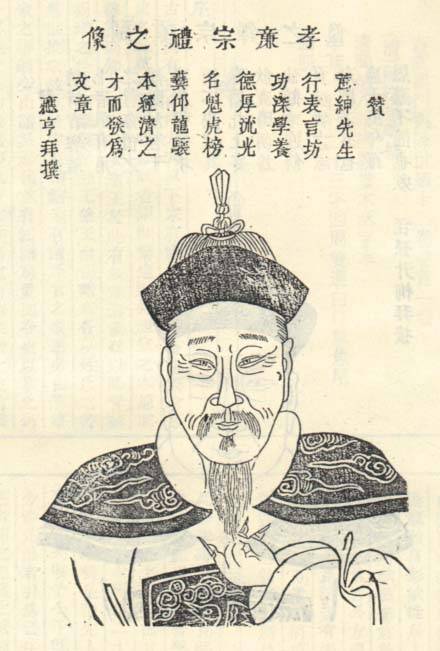 孝廉宗禮之像
贊
薦紳先生
行表言坊
功深學養
德厚流光
名魁虎榜
藝仰龍驤
本經濟之
才而發爲
文章
應亨拜撰